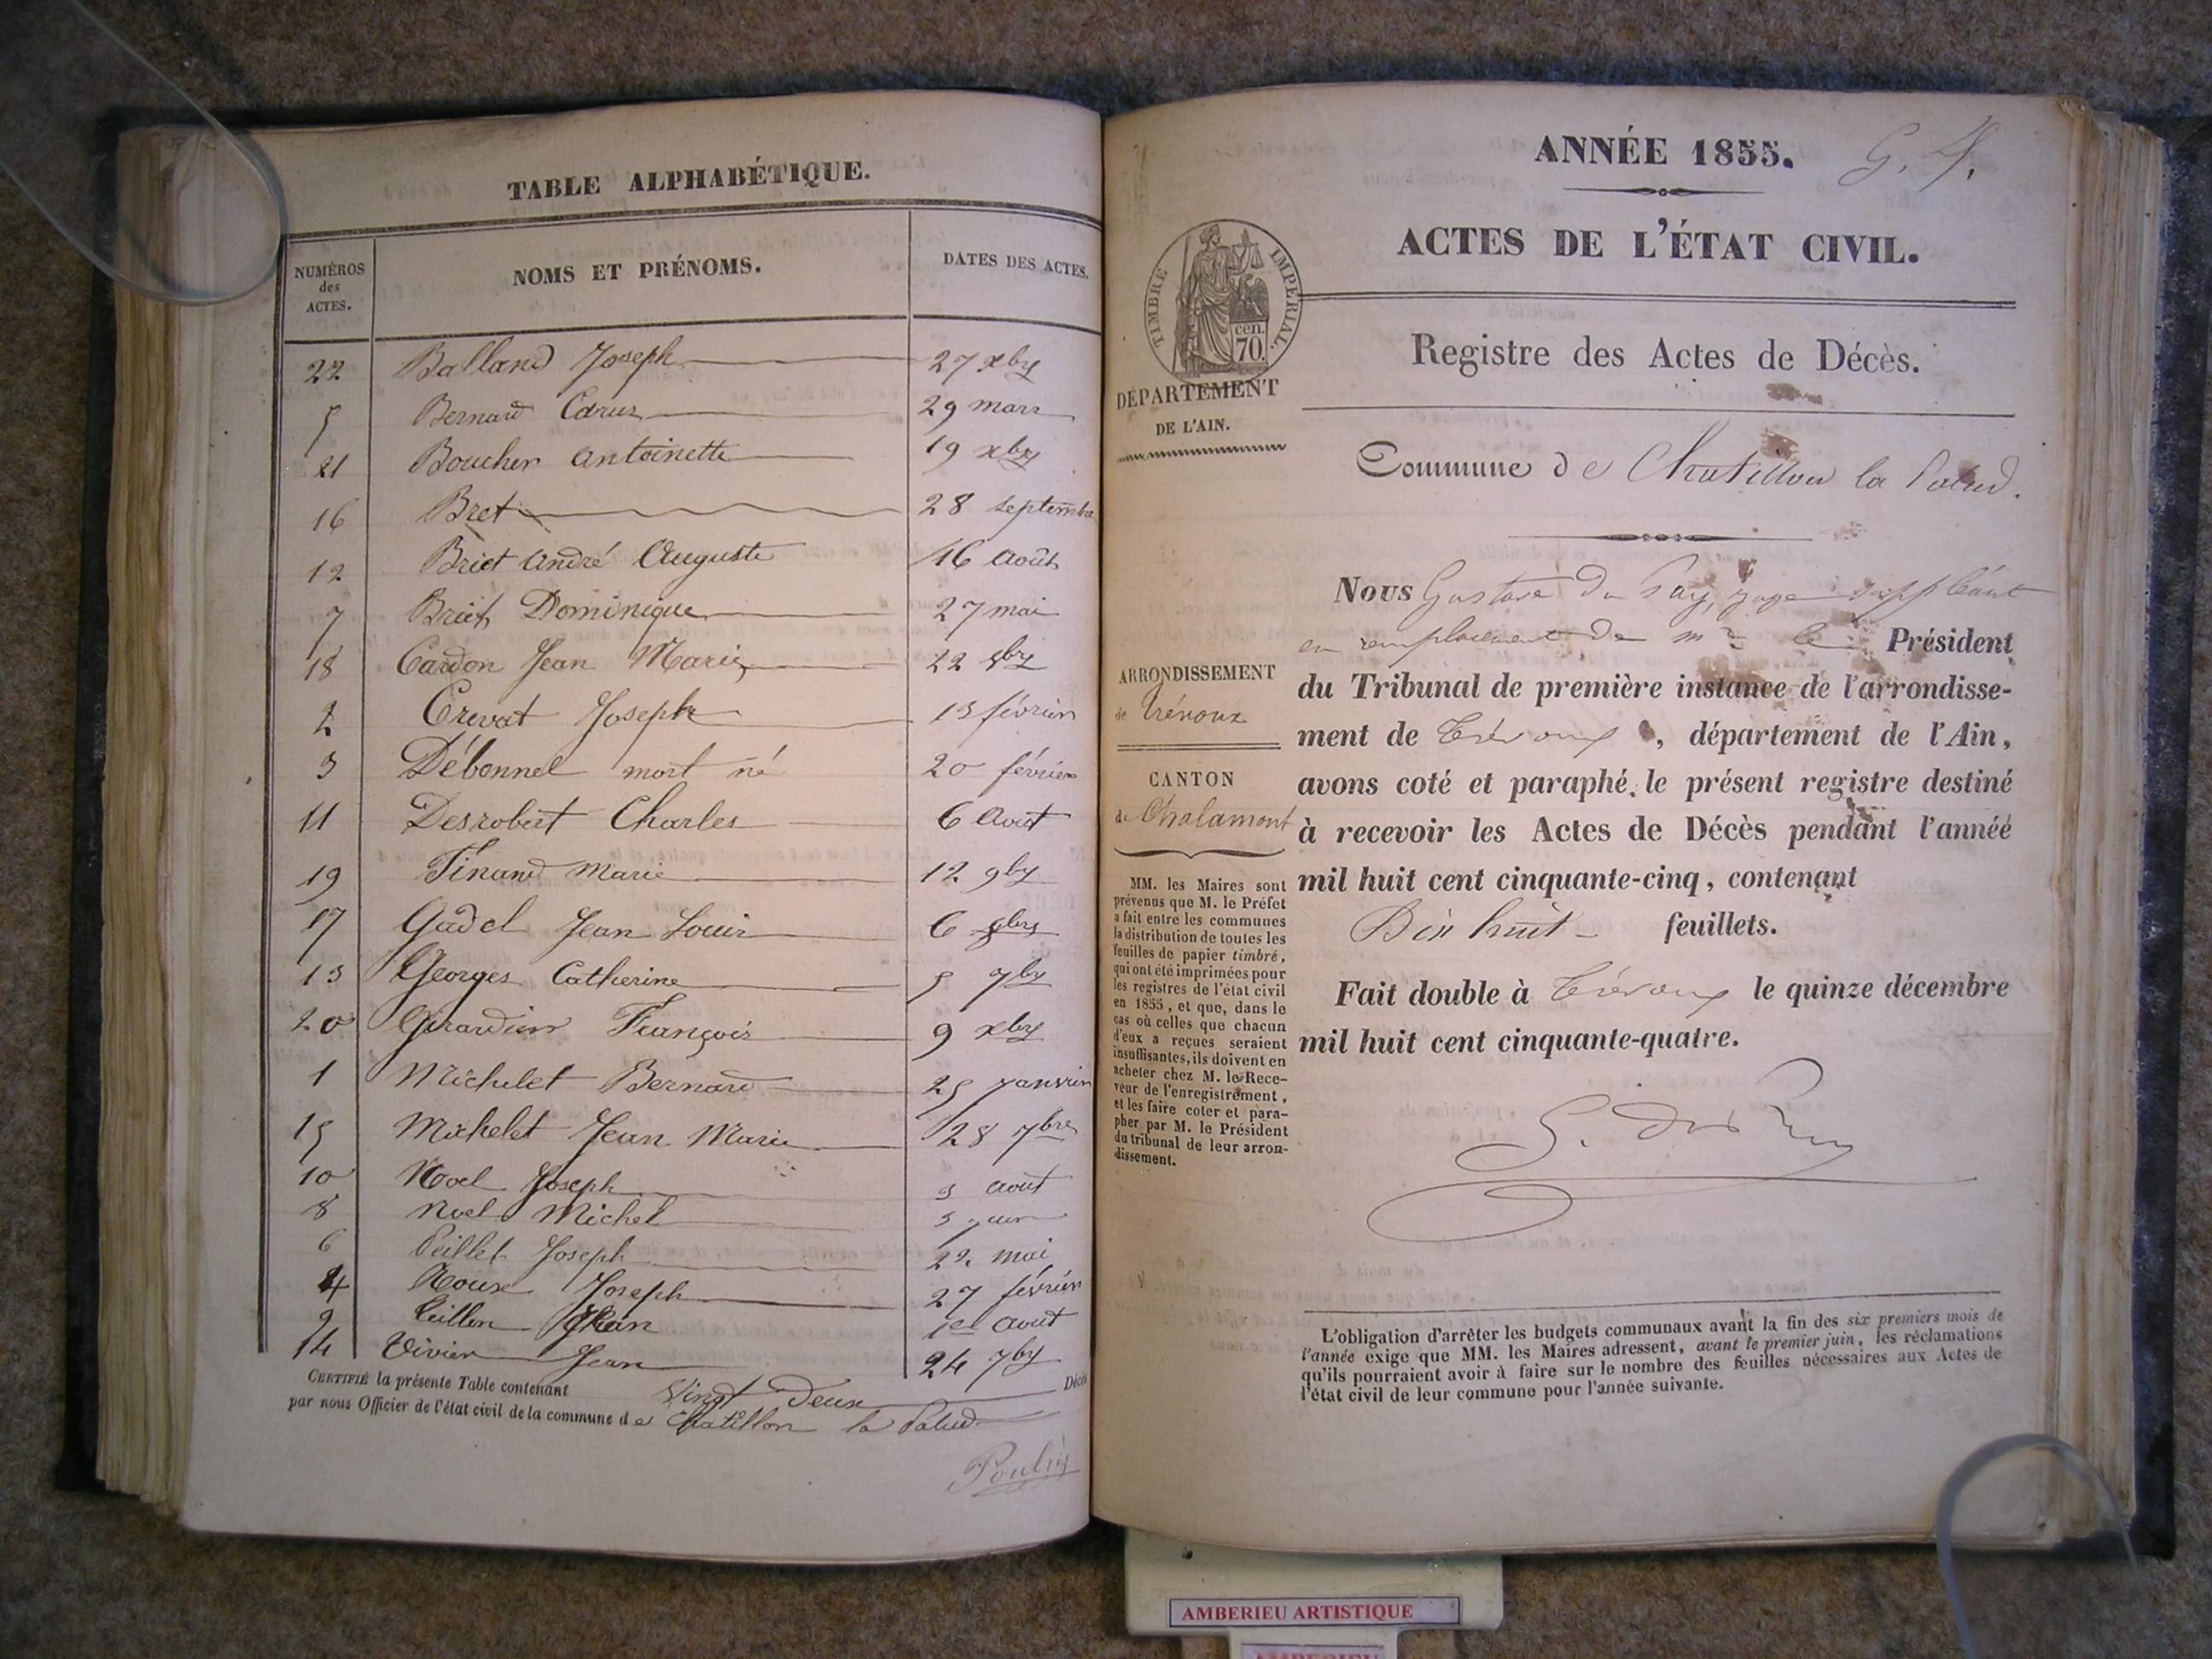 TABLE ALPHABÉTIQUE.
NUMÉROS des ACTES.
NOMS ET PRÉNOMS.
DATES DES ACTES.
22 Balland Joseph 27 xbre
5 Bernard 29 mars
21 Boucher Antoinette 19 xbre
16 Bret 28 septembre
12 Briet André Auguste 16 août
7 Briet Dominique 27 mai
18 Cardon Jean Marie 22 8bre
2 Crevat Joseph 13 février
3 Débonnel mort né 20 février
11 Desrobert Charles 6 Août
19 Finand Marie 12 9bre
17 Gadel Jean Louis 6 8bre
13 Georges Catherine 5 7bre
20 Girardin François 9 xbre
1 Michelet Bernard 25 Janvier
15 Michelet Jean Marie 28 7bre
10 Noel Joseph 3 août
8 Noel Michel 3 juin
6 Peillet Joseph 22 mai
4 Roux Joseph 27 février
9 Jean 1er août
14 Vivier Jean 24 7bre
CERTIFIÉ la présente Table contenant Vingt Deux Décès
par nous Officier de l'état civil de la commune de Chatillon la Palud
ANNÉE 1855.
ACTES DE L'ÉTAT CIVIL.
TIMBRE IMPÉRIAL.
cen. 70.
Registre des Actes de Décès.
DÉPARTEMENT
DE L'AIN.
Commune de Chatillon la Palud.
Nous Gustave Du juge suppléant
en remplacement de Mr le Président
du Tribunal de première instance de l'arrondisse-
ment de Trévoux, département de l'Ain,
avons coté et paraphé le présent registre destiné
à recevoir les Actes de Décès pendant l'année
mil huit cent cinquante-cinq, contenant
Dix huit feuillets.
Fait double à Trévoux le quinze décembre
mil huit cent cinquante-quatre.
ARRONDISSEMENT
de Trévoux
CANTON
de Chalamont
MM. les Maires sont
prévenus que M. le Préfet
a fait entre les communes
la distribution de toutes les
feuilles de papier timbré,
qui ont été imprimées pour
les registres de l'état civil
en 1855, et que, dans le
cas où celles que chacun
d'eux a reçues seraient
insuffisantes, ils doivent en
acheter chez M. le Rece-
veur de l'enregistrement,
et les faire coter et para-
pher par M. le Président
du tribunal de leur arron-
dissement.
L'obligation d'arrêter les budgets communaux avant la fin des six premiers mois de
l'année exige que MM. les Maires adressent, avant le premier juin, les réclamations
qu'ils pourraient avoir à faire sur le nombre des feuilles nécessaires aux Actes de
l'état civil de leur commune pour l'année suivante.
AMBERIEU ARTISTIQUE
AMBERIEU